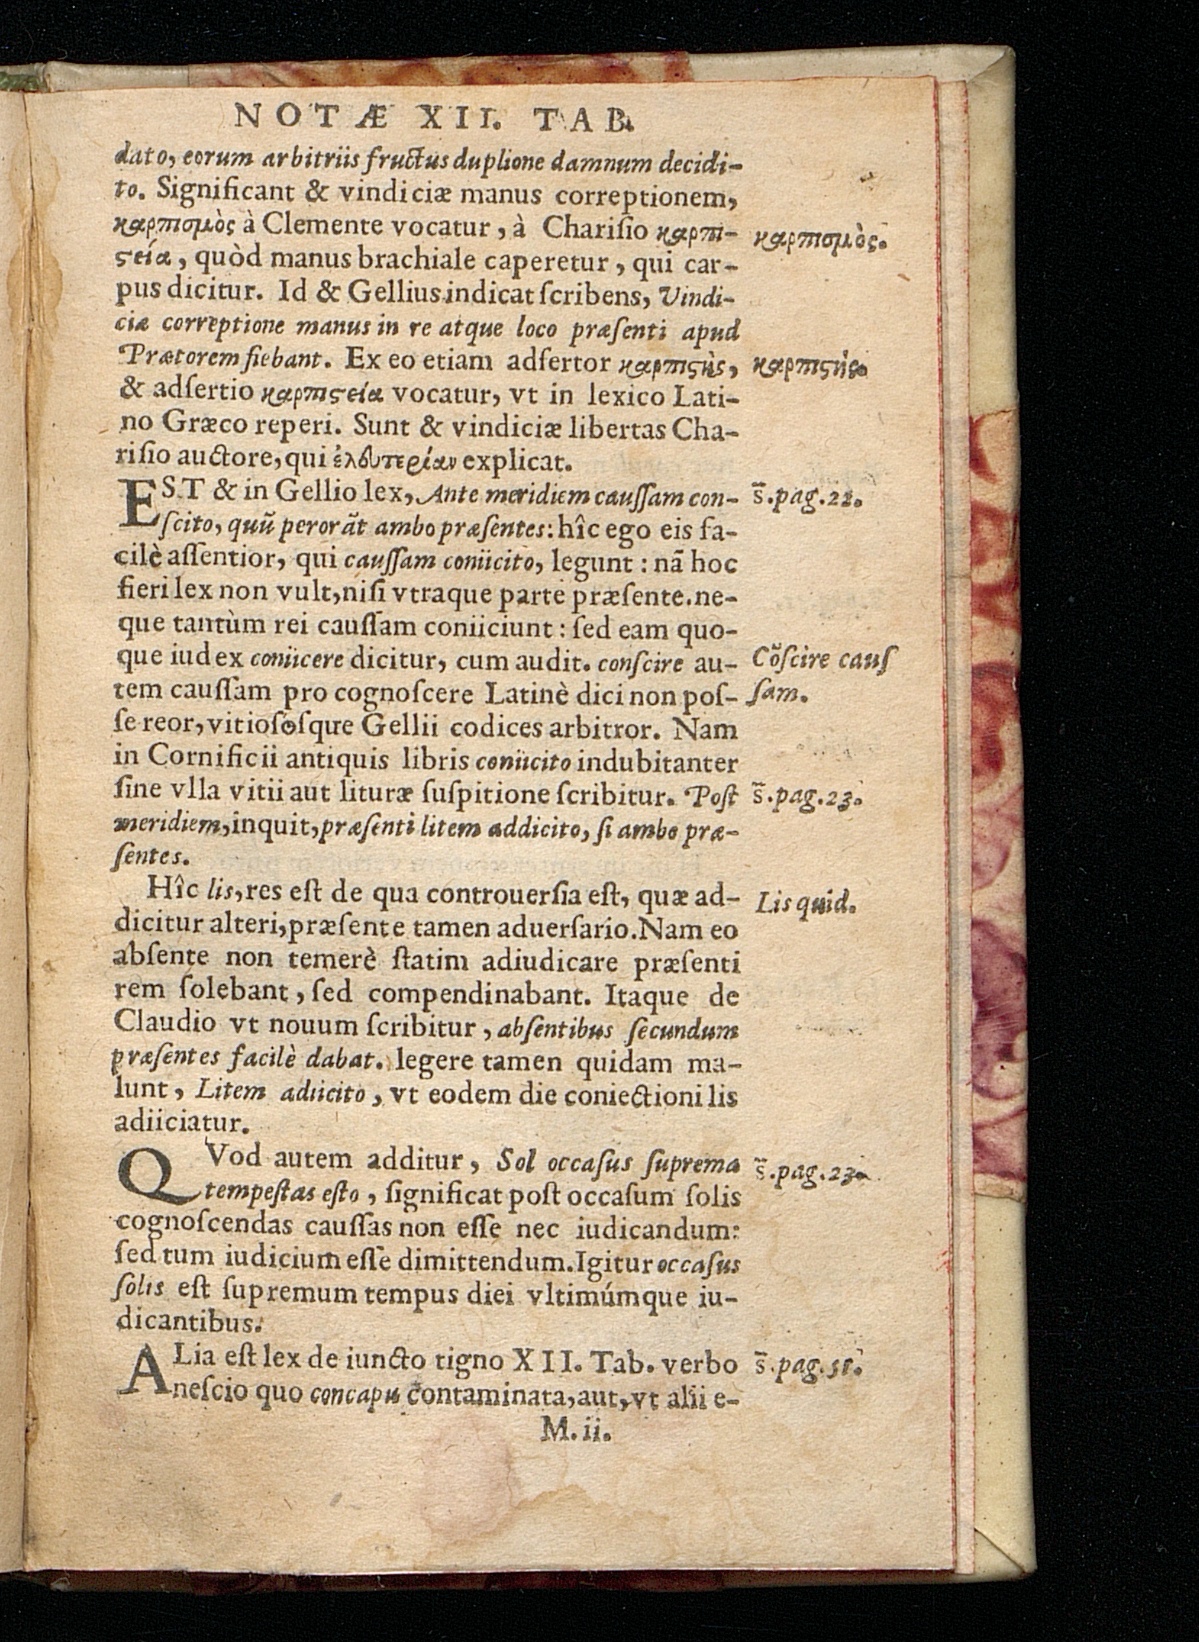 NOTÆ XII. TAB.
dato, eorum arbitriis fructus duplione damnum decidi-
to. Significant & vindiciæ manus correptionem,
καρπισμὸς à Clemente vocatur, à Charisio καρπι-
ϛεία, quòd manus brachiale caperetur, qui car-
pus dicitur. Id & Gellius indicat scribens, Vindi-
ciæ correptione manus in re atque loco præsenti apud
Prætorem fiebant. Ex eo etiam adsertor καρπιϛὴς,
& adsertio καρπιϛεία vocatur, vt in lexico Lati-
no Græco reperi. Sunt & vindiciæ libertas Cha-
risio auctore, qui ἐλευτερίαν explicat.
EST & in Gellio lex, Ante meridiem caussam con-
scito, quū perorāt ambo præsentes: hîc ego eis fa-
cilè assentior, qui caussam coniicito, legunt: nā hoc
fieri lex non vult, nisi vtraque parte præsente. ne-
que tantùm rei caussam coniiciunt: sed eam quo-
que iudex coniicere dicitur, cum audit. conscire au-
tem caussam pro cognoscere Latinè dici non pos-
se reor, vitiosósque Gellii codices arbitror. Nam
in Cornificii antiquis libris coniicito indubitanter
sine vlla vitii aut lituræ suspitione scribitur. Post
meridiem, inquit, præsenti litem addicito, si ambo præ-
sentes.
Hîc lis, res est de qua controuersia est, quæ ad-
dicitur alteri, præsente tamen aduersario. Nam eo
absente non temerè statim adiudicare præsenti
rem solebant, sed compendinabant. Itaque de
Claudio vt nouum scribitur, absentibus secundum
præsentes facilè dabat. legere tamen quidam ma-
lunt, Litem adiicito, vt eodem die coniectioni lis
adiiciatur.
QVod autem additur, Sol occasus suprema
tempestas esto, significat post occasum solis
cognoscendas caussas non esse nec iudicandum:
sed tum iudicium esse dimittendum. Igitur occasus
solis est supremum tempus diei vltimúmque iu-
dicantibus.
ALia est lex de iuncto tigno XII. Tab. verbo
nescio quo concapu contaminata, aut, vt alii e-
M.ii.
καρπισμὸς.
καρπιϛὴς.
s̄.pag.22.
Cōscire caus
sam.
s̄.pag.23.
Lis quid.
s̄.pag.23.
s̄.pag.51.